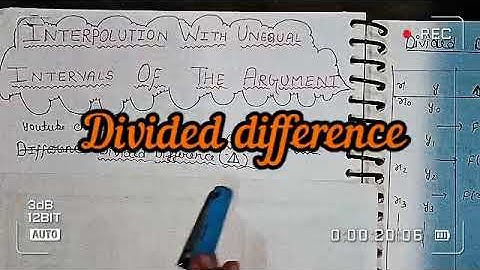 INTERPOLUTION WITH UNEQUAL
INTERVALS OF THE ARGUMENT
Youtube
Divided difference
Difference Divided Difference (Δ)
REC
Divided
x y
x₀
y₁
x₂ y₂
x₃ y₃
3dB
12BIT
AUTO
0:00:20:06